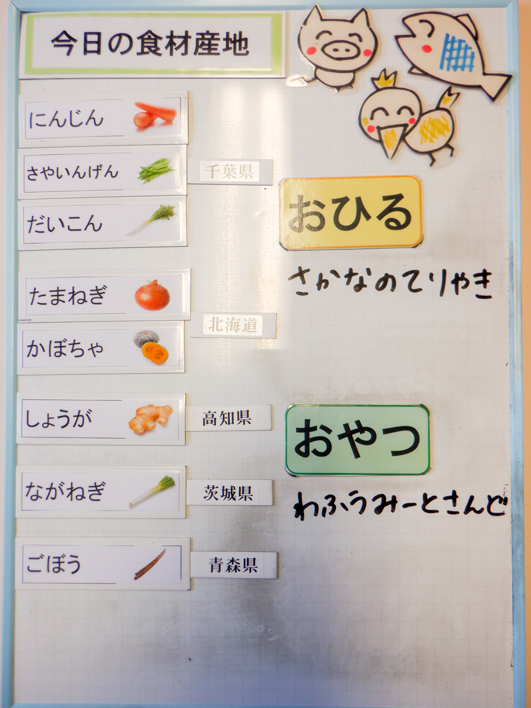 今日の食材産地
にんじん
さやいんげん
千葉県
だいこん
たまねぎ
北海道
かぼちゃ
しょうが
高知県
ながねぎ
茨城県
ごぼう
青森県
おひる
さかなのてりやき
おやつ
わふうみーとさんど